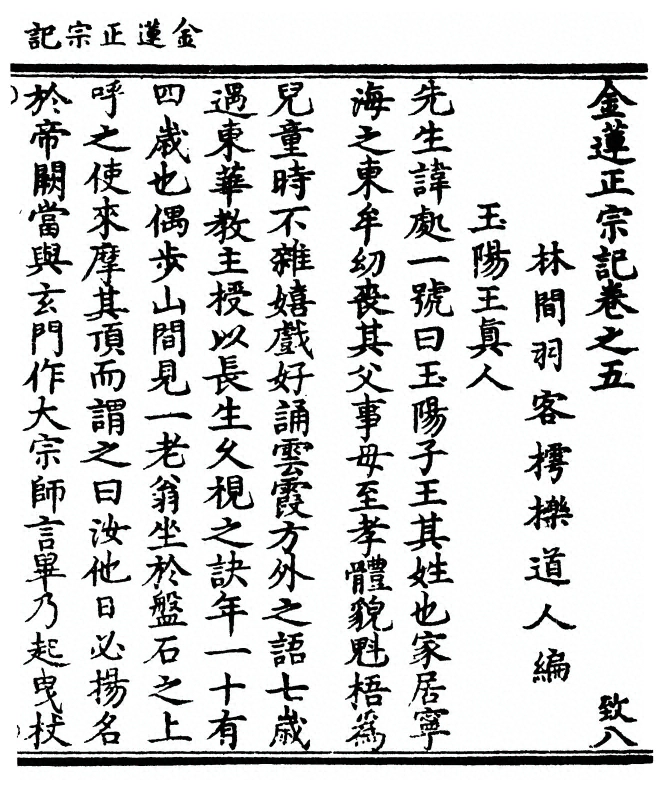 金蓮正宗記
金蓮正宗記卷之五
致八
林間羽客樗櫟道人編
玉陽王眞人
先生諱處一號曰玉陽子王其姓也家居寧
海之東牟幼喪其父事母至孝體貌魁梧爲
兒童時不雜嬉戲好誦雲霞方外之語七歲
遇東華教主授以長生久視之訣年一十有
四歲也偶步山間見一老翁坐於盤石之上
呼之使來摩其頂而謂之曰汝他日必揚名
於帝闕當與玄門作大宗師言畢乃起曳杖